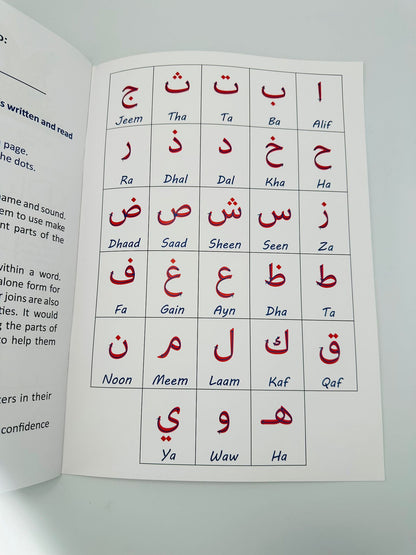 O:
s written and read
page.
he dots.
ame and sound.
em to use make
nt parts of the
within a word.
alone form for
r joins are also
ties. It would
g the parts of
to help them
ers in their
confidence
ا ب ت ث ج
Alif Ba Ta Tha Jeem
ح خ د ذ ر
Ha Kha Dal Dhal Ra
ز س ش ص ض
Za Seen Sheen Saad Dhaad
ط ظ ع غ ف
Ta Dha Ayn Gain Fa
ق ك ل م ن
Qaf Kaf Laam Meem Noon
هـ و ي
Ha Waw Ya